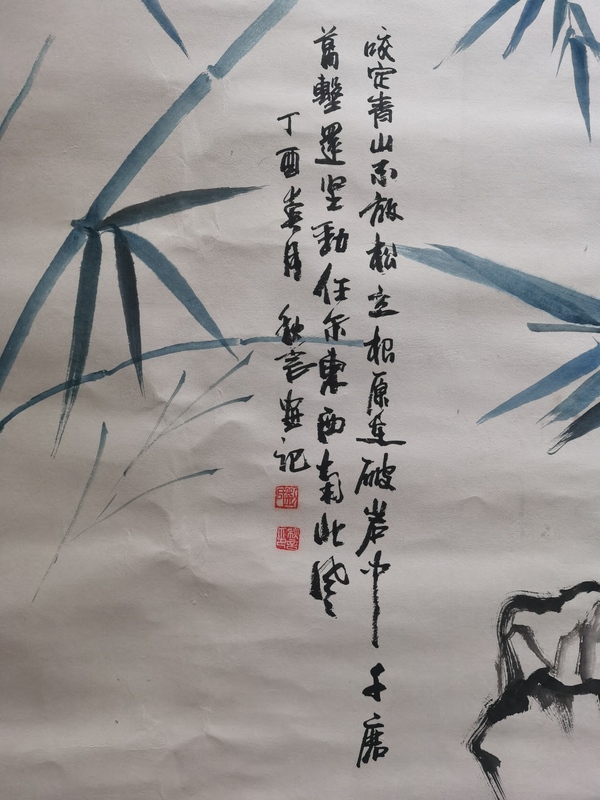 咬定青山不放松立根原在破岩中千磨
萬擊還坚勁任尔東西南北風
丁酉春月 秋画记